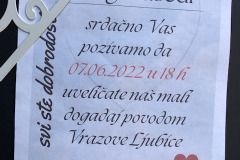 srdačno Vas
pozivamo da
07.06.2022 u 18 h
uveličate naš mali
događaj povodom
Vrazove Ljubice
svi ste dobrodošli